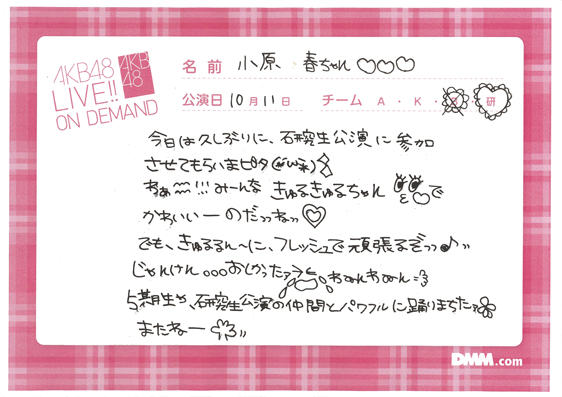 AKB48
LIVE!!
ON DEMAND
AKB
48
名前 小原 春ちゃん♡♡♡
公演日 10月11日 チーム A・K・B・研
今日は久しぶりに、研究生公演に参加
させてもらいまピタ(*´ω`*)
わぁ〜!!!みーんな きゅるきゅるちゃん で
かわいぃーのだっねっ♡
でも、きゅるるん〜に、フレッシュで頑張るぞっっ♪”
じゃんけん。。。おしかったァ わぁ〜んわぁ〜ん
5期生や、研究生公演の仲間とパワフルに踊りまちたァ
またねー
DMM.com